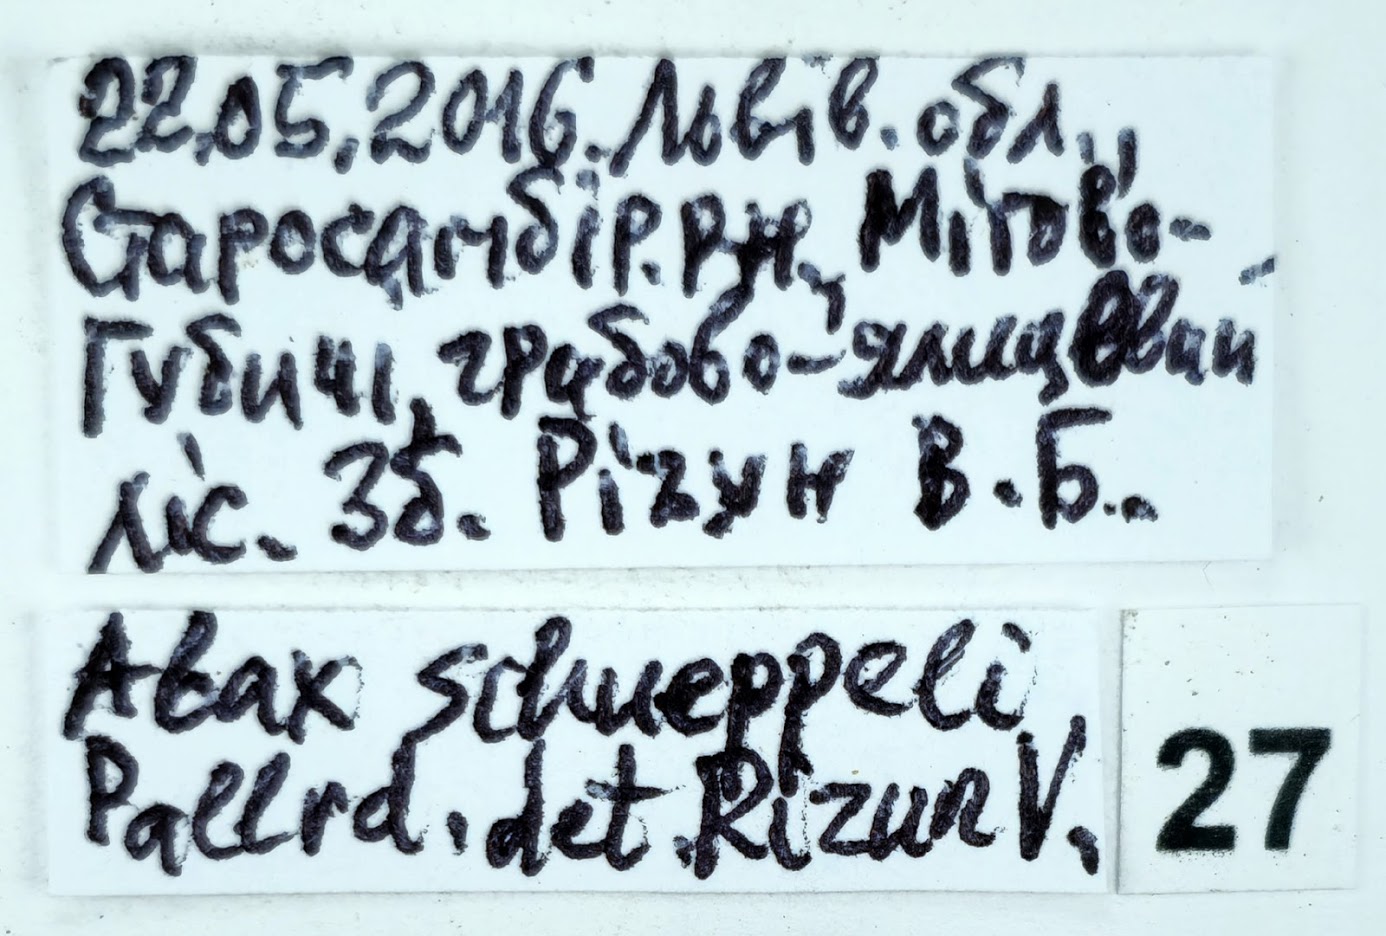 22.05.2016. Львів. обл.,
Старосамбір. р-н,
Губичі, грабово-ялицевий
ліс. Зб. Різун В.Б..
Abax schueppeli
Pallrd. det. Rizun V.
27